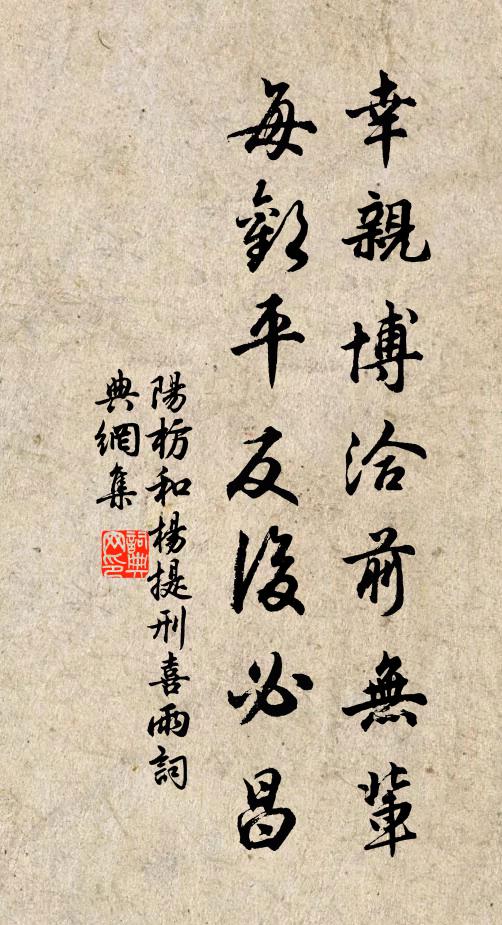 幸親博洽前無輩
每歎平反後必昌
陽枋和楊提刑喜雨詞
典網集
詞典网印